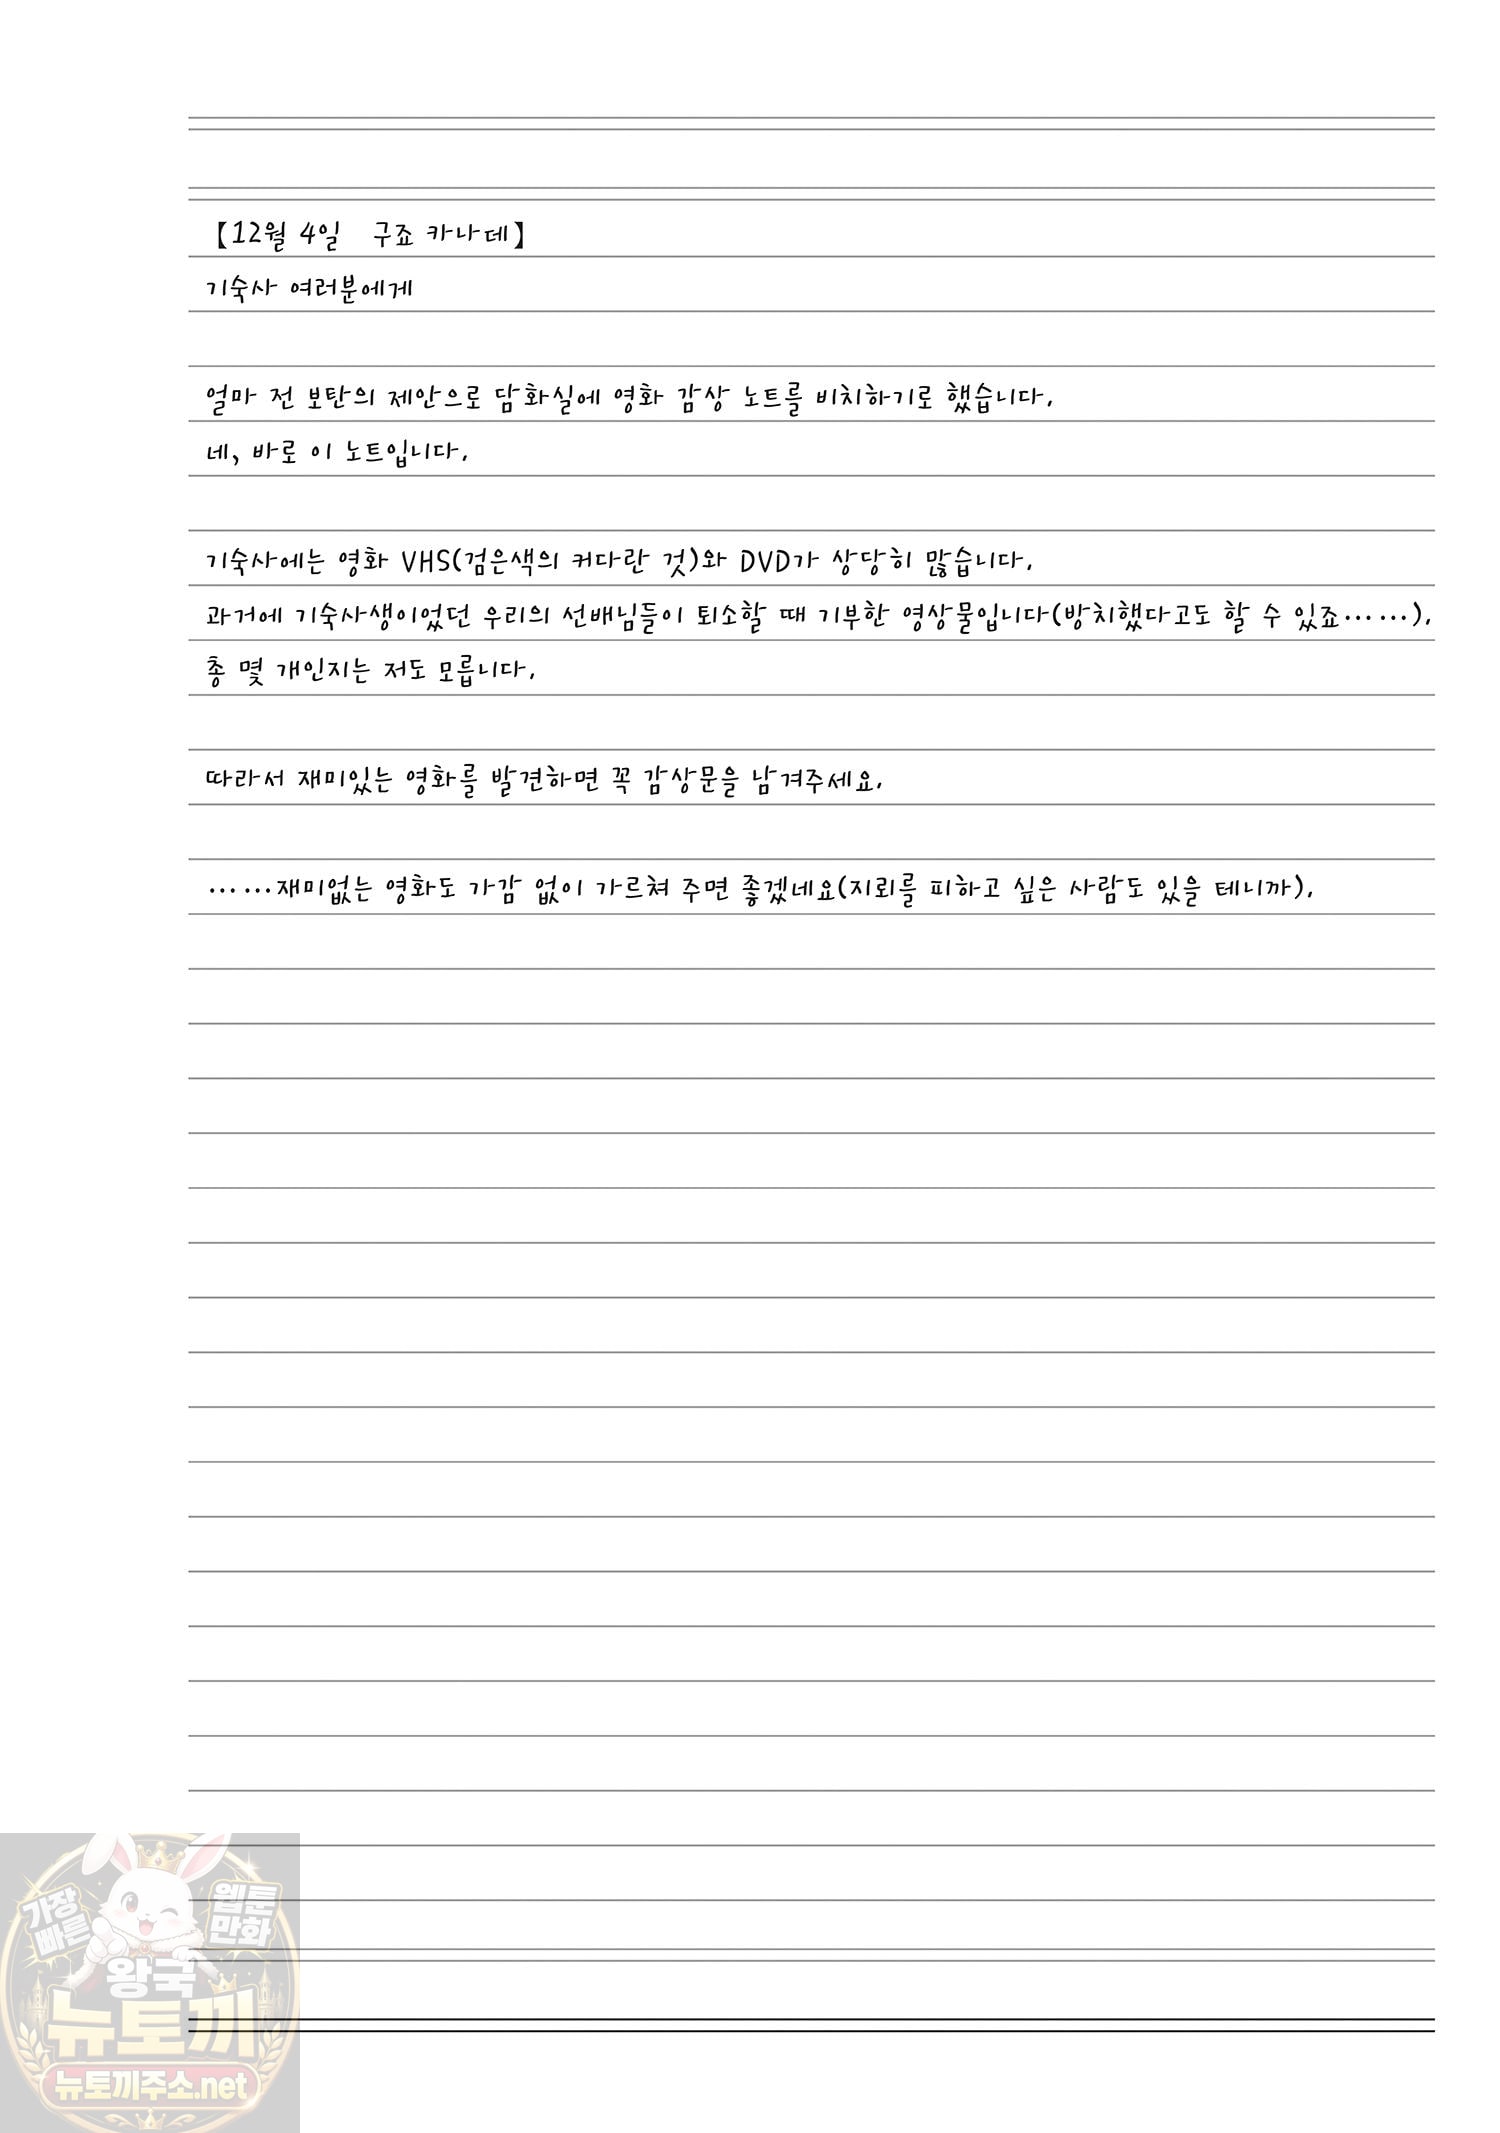 【12월 4일 구죠 카나데】
기숙사 여러분에게
얼마 전 보탄의 제안으로 담화실에 영화 감상 노트를 비치하기로 했습니다.
네, 바로 이 노트입니다.
기숙사에는 영화 VHS(검은색의 커다란 것)와 DVD가 상당히 많습니다.
과거에 기숙사생이었던 우리의 선배님들이 퇴소할 때 기부한 영상물입니다(방치했다고도 할 수 있죠……).
총 몇 개인지는 저도 모릅니다.
따라서 재미있는 영화를 발견하면 꼭 감상문을 남겨주세요.
……재미없는 영화도 가감 없이 가르쳐 주면 좋겠네요(지뢰를 피하고 싶은 사람도 있을 테니까).
가장 빠른
웹툰 만화
왕국
뉴토끼
뉴토끼주소.net